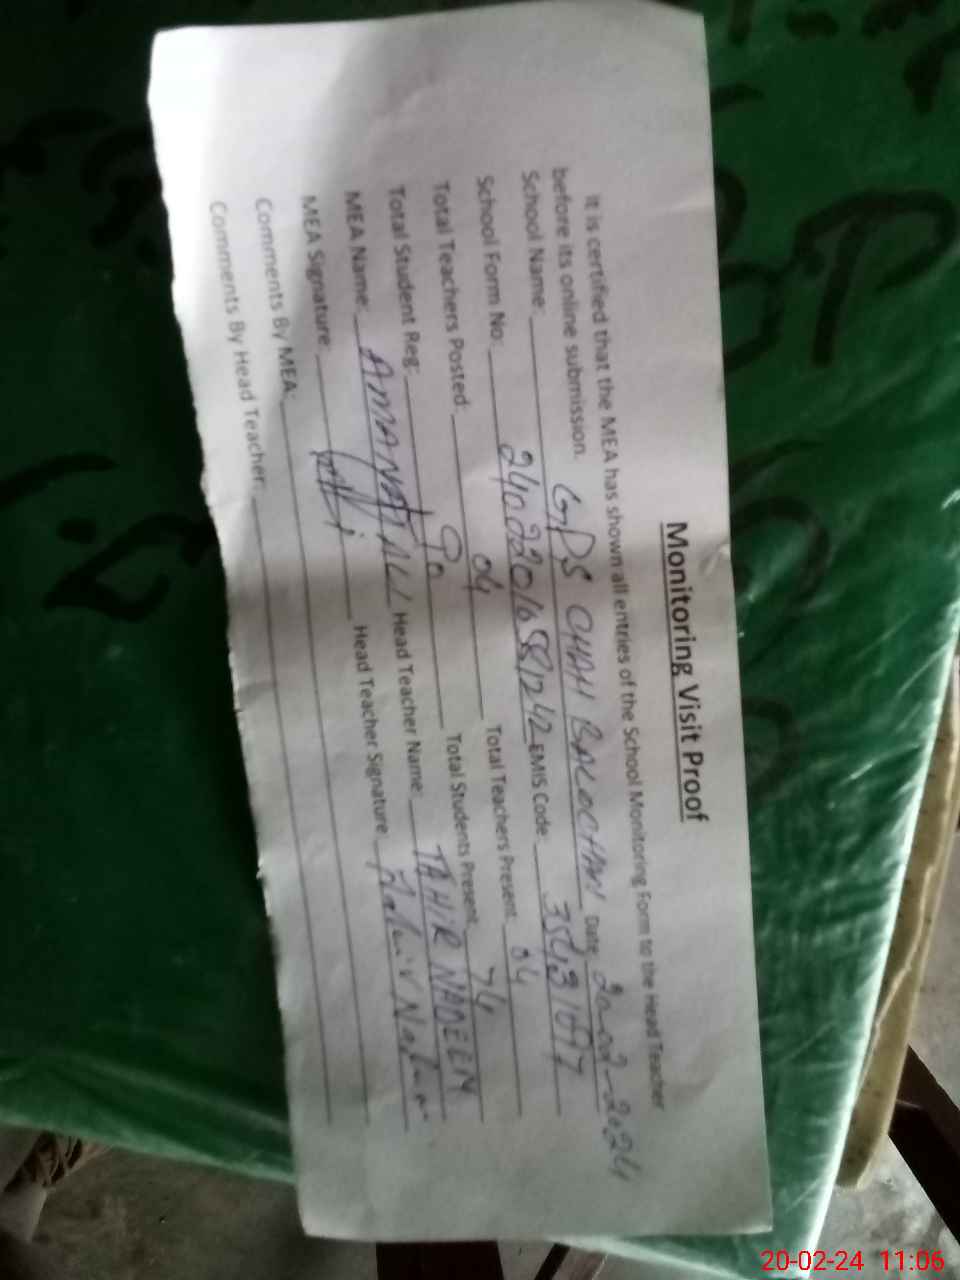 Monitoring Visit Proof
It is certified that the MEA has shown all entries of the School Monitoring Form to the Head Teacher
before its online submission.
School Name: GPS CHAH BALOCHAN Date 20-02-2024
School Form No: EMIS Code:
Total Teachers Posted: 04 Total Teachers Present 04
Total Student Reg: 90 Total Students Present 74
MEA Name: AMANAT ALI Head Teacher Name: TAHIR NADEEM
MEA Signature: Head Teacher Signature
Comments By MEA:
Comments By Head Teacher:
20-02-24 11:06